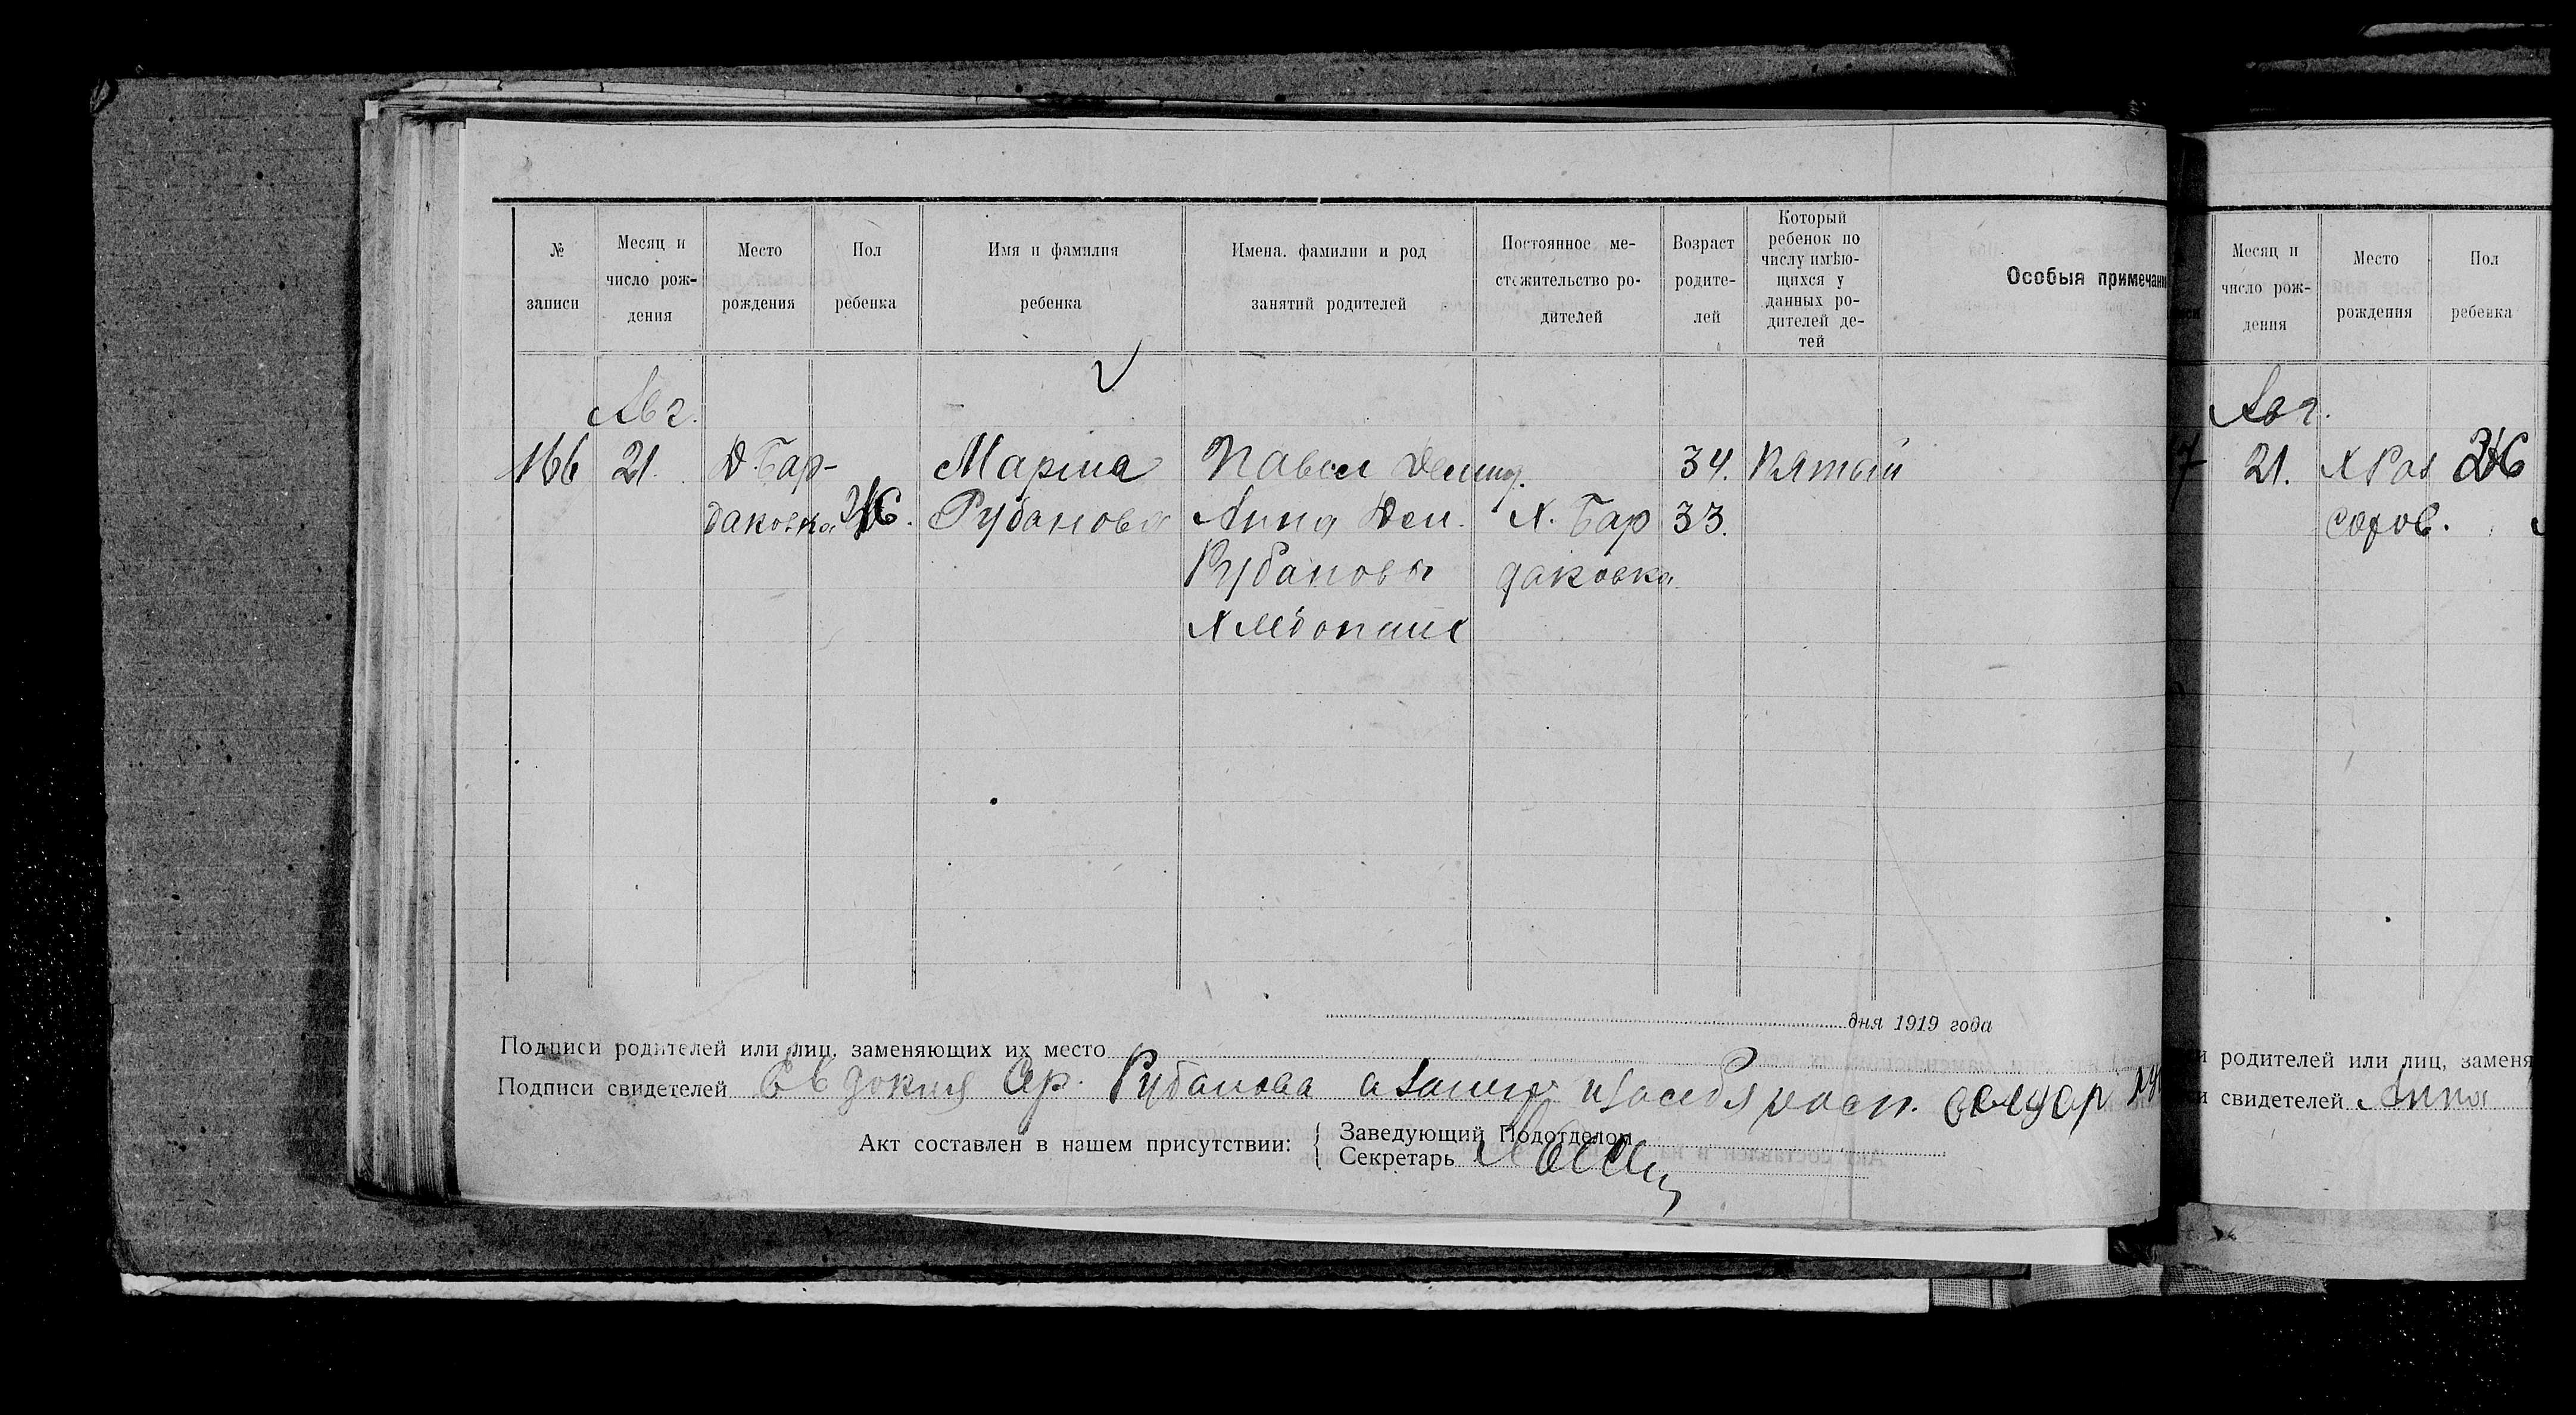 № записи
Месяц и число рождения
Место рождения
Пол ребенка
Имя и фамилия ребенка
Имена. фамилии и род занятий родителей
Постоянное местожительство родителей
Возраст родителей
Который ребенок по числу имѣющихся у данных родителей детей
Особыя примечани
Авг.
166 21. Д. Бар- Мария Павел 34. Пятый
даковка Ж. Рубанова Анна Дем. Х. Бар 33.
Рубановы даковка
Хлебопаш
дня 1919 года
Подписи родителей или лиц, заменяющих их место
Подписи свидетелей Евдокия Рубанова
Акт составлен в нашем присутствии:
Заведующий Подотделом
Секретарь
Месяц и число рождения
Место рождения
Пол ребенка
Авг.
7 21. Ж
и родителей или лиц, заменя
и свидетелей Анна